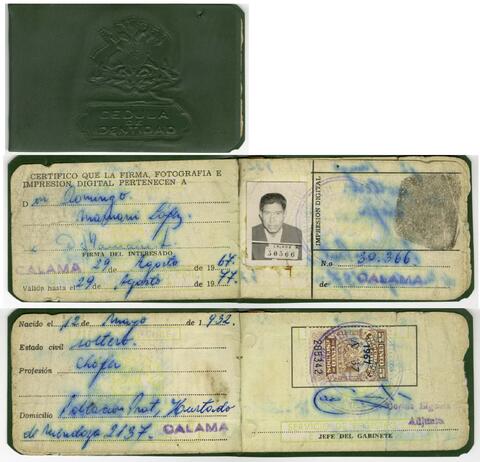 CEDULA
DE
IDENTIDAD
CERTIFICO QUE LA FIRMA, FOTOGRAFIA E
IMPRESION DIGITAL PERTENECEN A
Don Domingo
Mamani López
FIRMA DEL INTERESADO
CALAMA 29 de Agosto de 1967.
Válido hasta el 29 de Agosto de 1977.
CALAMA
30366
IMPRESION DIGITAL
N.o 30.366.
de CALAMA
Nacido el 12 de Mayo de 1.932.
Estado civil soltero.
Profesión Chofer
Domicilio Poblacion Prat Hurtado
de Mendoza 2137. CALAMA
1967
205342
Adjunta
JEFE DEL GABINETE